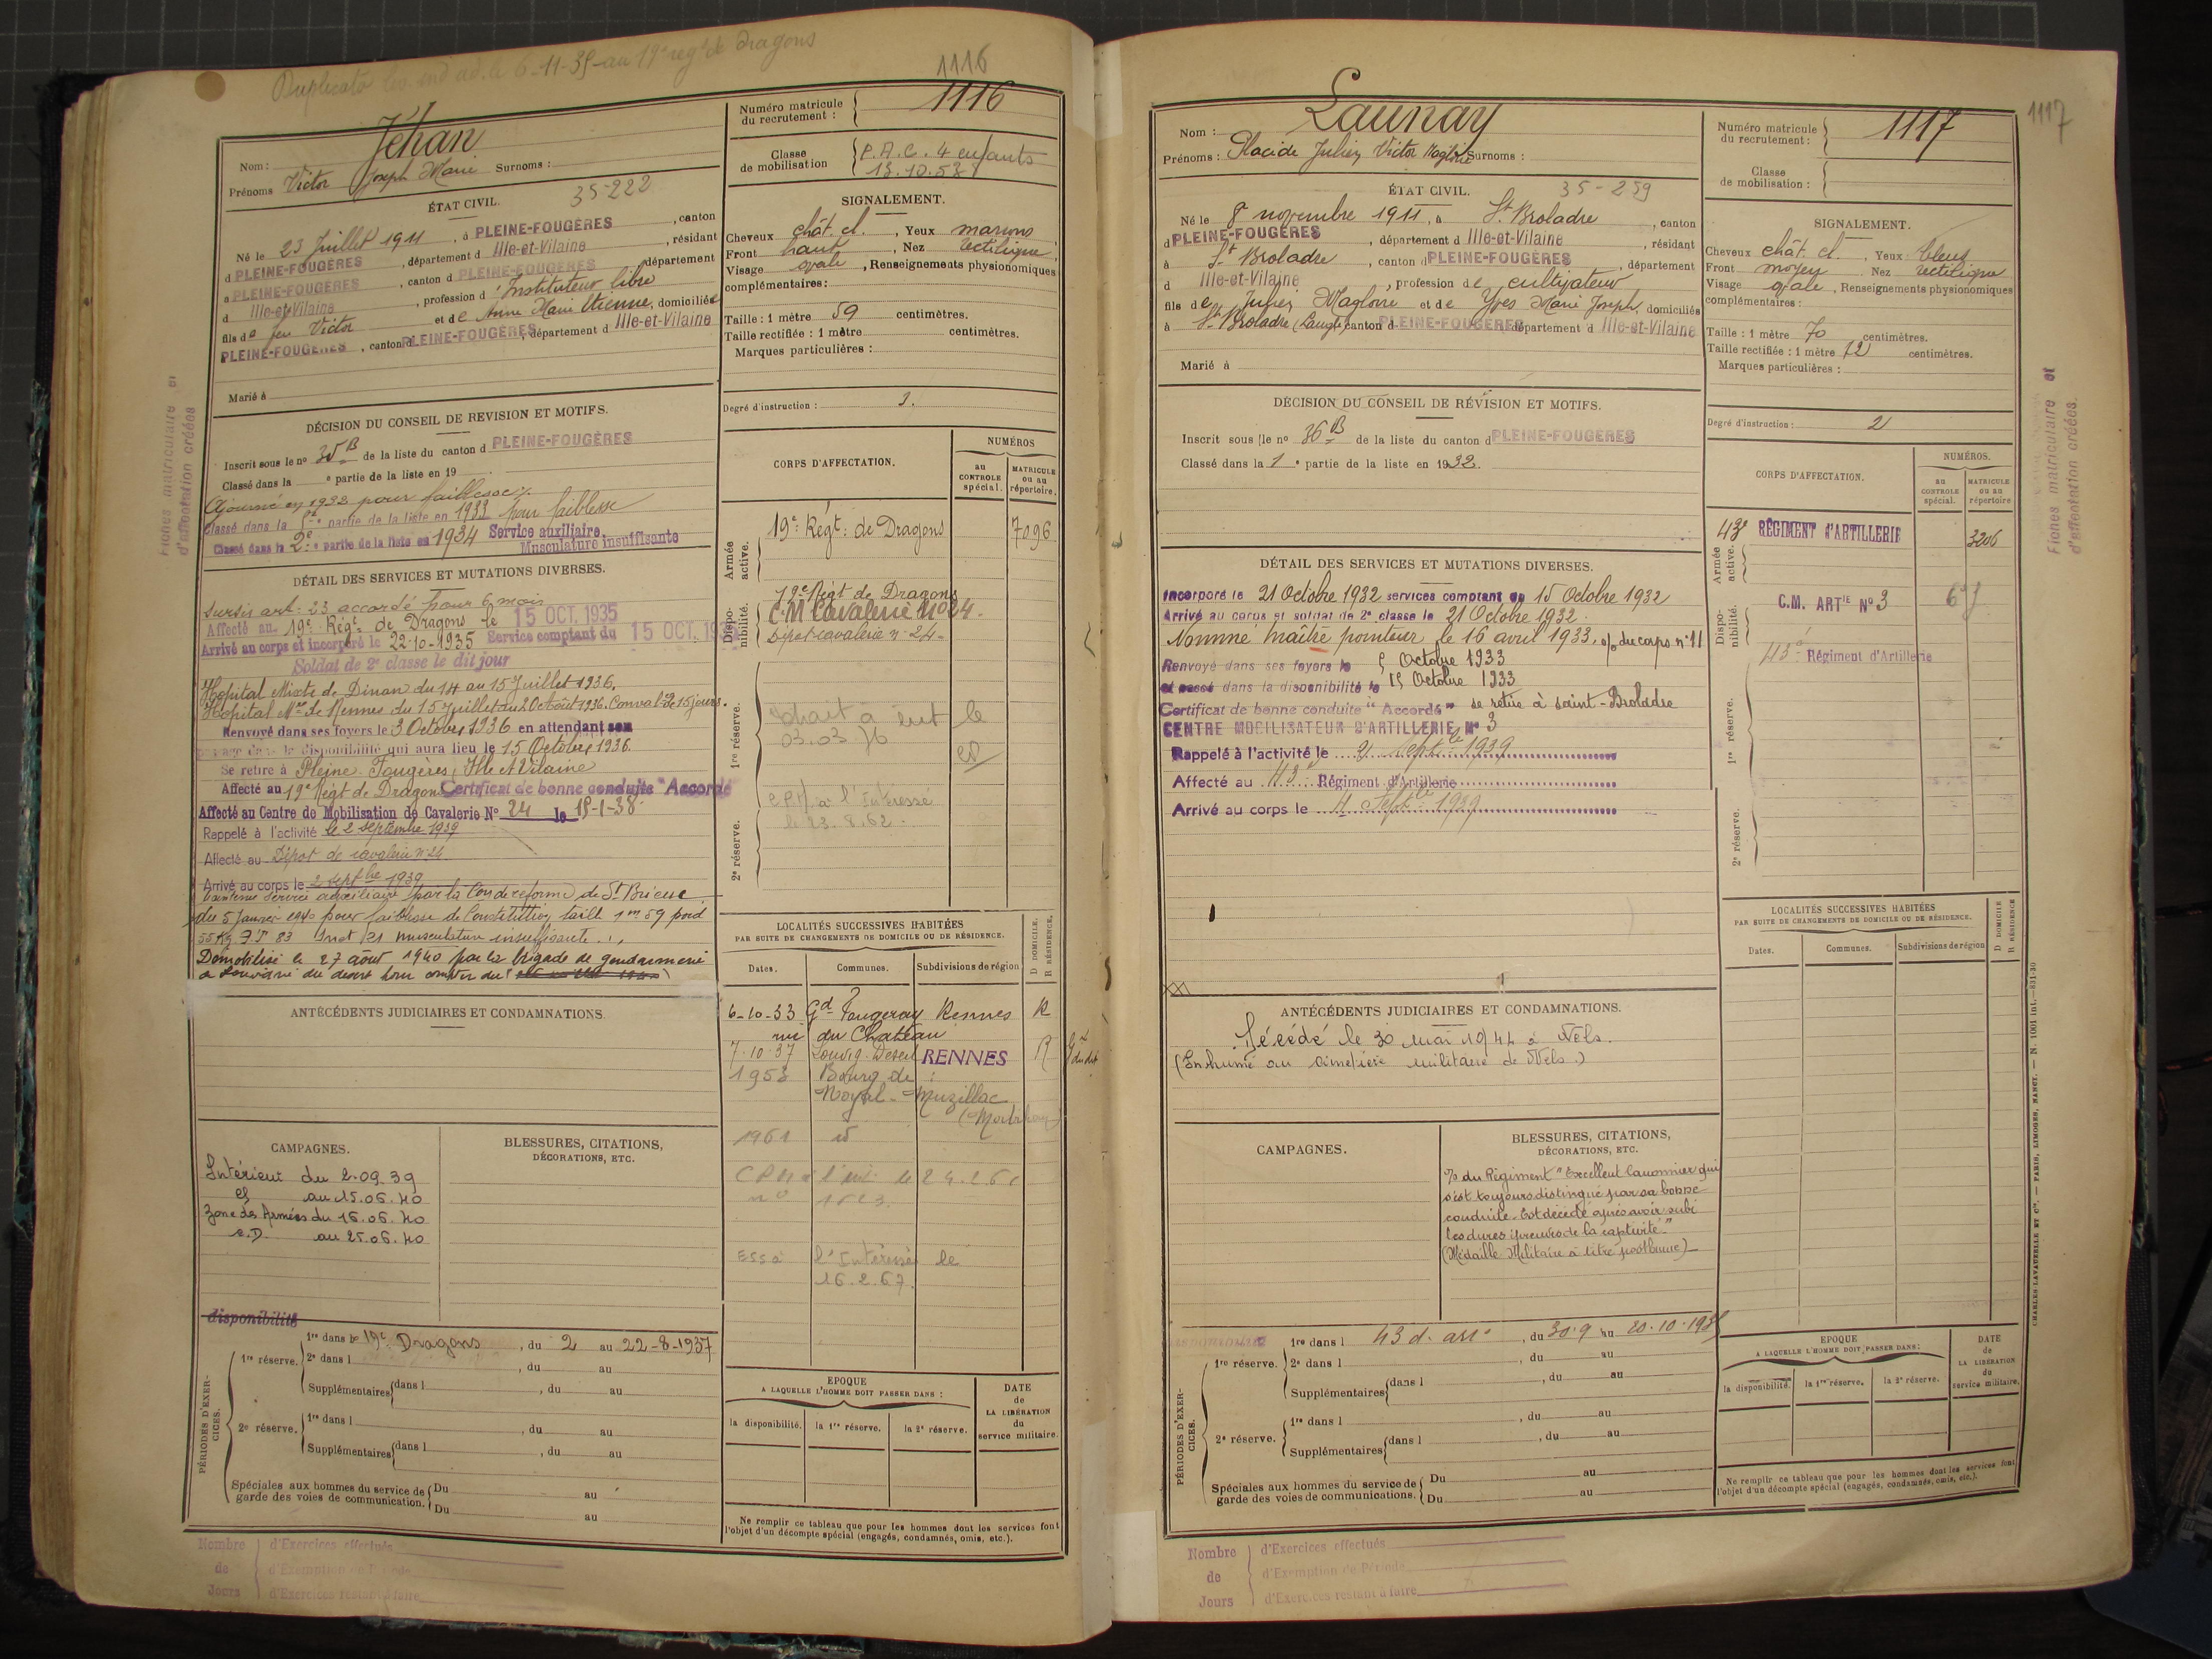 Duplicata liv. ind ad. le 6-11-35 au 19e regt de dragons
1116
Nom : Jéhan
Prénoms Victor Joseph Marie Surnoms :
35-222
ÉTAT CIVIL.
Né le 23 Juillet 1911, à PLEINE-FOUGÈRES, canton
d PLEINE-FOUGÈRES, département d Ille-et-Vilaine, résidant
à PLEINE-FOUGÈRES, canton d PLEINE-FOUGÈRES, département
d Ille-et-Vilaine, profession d'Instituteur libre
fils de feu Victor et de Anne Marie Etienne, domiciliés
PLEINE-FOUGÈRES, canton d PLEINE-FOUGÈRES, département d Ille-et-Vilaine
Marié à
DÉCISION DU CONSEIL DE REVISION ET MOTIFS.
Inscrit sous le no 35B de la liste du canton d PLEINE-FOUGÈRES
Classé dans la e partie de la liste en 19
Ajourné en 1932 pour faiblesse
Classé dans la 5e partie de la liste en 1933 pour faiblesse
Classé dans la 2e partie de la liste en 1934 Service auxiliaire.
Musculature insuffisante
DÉTAIL DES SERVICES ET MUTATIONS DIVERSES.
Sursis art. 23 accordé pour 6 mois
Affecté au 19e Régt de Dragons le 15 OCT. 1935
Arrivé au corps et incorporé le 22-10-1935 Service comptant du 15 OCT. 19
Soldat de 2e classe le dit jour
Hopital Mixte de Dinan du 14 au 15 Juillet 1936.
Hopital Mre de Rennes du 15 Juillet au 2 Août 1936. Conval. de 15 jours.
Renvoyé dans ses foyers le 3 Octobre 1936 en attendant son
passage dans la disponibilité qui aura lieu le 15 Octobre 1936.
Se retire à Pleine-Fougères, Ille et Vilaine
Affecté au 19e Régt de Dragons Certificat de bonne conduite "Accordé
Affecté au Centre de Mobilisation de Cavalerie No 24 le 15-1-38
Rappelé à l'activité le 2 septembre 1939
Affecté au Dépot de cavalerie n° 24
Arrivé au corps le 2 septbre 1939
Maintenu Service auxiliaire par la Con de reforme de St Brieuc
du 5 Janvier 1940 pour faiblesse de Constitution taille 1m59 poid
55 Kg P.T 83 musculature insuffisante
Démobilisé le 27 août 1940 par la brigade de gendarmerie
a Louvigné du désert
ANTÉCÉDENTS JUDICIAIRES ET CONDAMNATIONS.
CAMPAGNES.
Intérieur du 2.09.39
au 15.06.40
Zone des Armées du 16.06.40
au 25.06.40
BLESSURES, CITATIONS,
DÉCORATIONS, ETC.
disponibilité
PÉRIODES D'EXERCICES.
1re réserve. 1re dans le 19e Dragons, du 2 au 22-8-1937
2e dans l , du au
Supplémentaires dans l , du au
2e réserve. 1re dans l , du au
Supplémentaires dans l , du au
Spéciales aux hommes du service de garde des voies de communication. Du au
Du au
Nombre de Jours
d'Exercices effectués
d'Exemption de Période
d'Exercices restant à faire
Fiches matriculaire et
d'affectation créées
1116
Numéro matricule
du recrutement :
Classe
de mobilisation P.A.C. 4 enfants
SIGNALEMENT.
Cheveux chât. cl., Yeux marrons
Front haut, Nez rectiligne
Visage ovale, Renseignements physionomiques
complémentaires :
Taille : 1 mètre 59 centimètres.
Taille rectifiée : 1 mètre centimètres.
Marques particulières :
Degré d'instruction : 3.
CORPS D'AFFECTATION.
NUMÉROS
au CONTROLE spécial.
MATRICULE ou au répertoire.
Armée active. 19e Régt de Dragons 7096
Disponibilité. 19e Régt de Dragons
C.M Cavalerie No 24.
Dépot cavalerie n° 24
1re réserve.
03.03.76
2e réserve. à l'Intéressé
le 23.8.62.
LOCALITÉS SUCCESSIVES HABITÉES
PAR SUITE DE CHANGEMENTS DE DOMICILE OU DE RÉSIDENCE.
Dates. Communes. Subdivisions de région D DOMICILE. R RÉSIDENCE.
6-10-33 Gd Fougeray Rennes R
rue du Chateau
7-10-37 Louvig-Désert RENNES R
1953 Bourg de
Noyal-Muzillac
(Morbihan)
1961 id
ESS à l'Intéressé le
16.2.67.
EPOQUE
A LAQUELLE L'HOMME DOIT PASSER DANS :
la disponibilité. la 1re réserve. la 2e réserve.
DATE de LA LIBÉRATION du service militaire.
Ne remplir ce tableau que pour les hommes dont les services font
l'objet d'un décompte spécial (engagés, condamnés, omis, etc.).
1117
Nom : Launay
Prénoms : Placide Julien Victor Magloire Surnoms :
35-259
ÉTAT CIVIL.
Né le 8 novembre 1911, à St Broladre, canton
d PLEINE-FOUGÈRES, département d Ille-et-Vilaine, résidant
à St Broladre, canton d PLEINE-FOUGÈRES, département
d Ille-et-Vilaine, profession de cultivateur
fils de Julien Magloire et de Yves Marie Joseph, domiciliés
à St Broladre, canton d PLEINE-FOUGÈRES département d Ille-et-Vilaine
Marié à
DÉCISION DU CONSEIL DE RÉVISION ET MOTIFS.
Inscrit sous le no 36B de la liste du canton d PLEINE-FOUGÈRES
Classé dans la 1e partie de la liste en 1932.
DÉTAIL DES SERVICES ET MUTATIONS DIVERSES.
Incorporé le 21 Octobre 1932 services comptant du 15 Octobre 1932
Arrivé au corps et soldat de 2e classe le 21 Octobre 1932.
Nommé maître pointeur le 16 avril 1933. o/ du corps n° 11
Renvoyé dans ses foyers le 5 Octobre 1933
et passé dans la disponibilité le 15 Octobre 1933
Certificat de bonne conduite "Accordé" se retire à Saint-Broladre
CENTRE MOBILISATEUR D'ARTILLERIE No 3
Rappelé à l'activité le 2 septbre 1939
Affecté au 43e Régiment d'Artillerie
Arrivé au corps le 4 septbre 1939
ANTÉCÉDENTS JUDICIAIRES ET CONDAMNATIONS.
Décédé le 30 mai 1944 à Wels.
(Enhumé au cimetière militaire de Wels.)
CAMPAGNES.
BLESSURES, CITATIONS,
DÉCORATIONS, ETC.
o/o du Régiment "Excellent canonnier qui
s'est toujours distingué par sa bonne
conduite. Est décédé après avoir subi
les dures épreuves de la captivité"
(Médaille Militaire à titre posthume)
PÉRIODES D'EXERCICES.
1re réserve. 1re dans l 43 d. arie, du 30.9 au 20.10.193
2e dans l , du au
Supplémentaires dans l , du au
2e réserve. 1re dans l , du au
Supplémentaires dans l , du au
Spéciales aux hommes du service de garde des voies de communications. Du au
Du au
Nombre de Jours
d'Exercices effectués
d'Exemption de Période
d'Exercices restant à faire
Numéro matricule
du recrutement : 1117
Classe
de mobilisation :
SIGNALEMENT.
Cheveux chât. cl., Yeux bleus
Front moyen Nez rectiligne
Visage ovale, Renseignements physionomiques
complémentaires :
Taille : 1 mètre 70 centimètres.
Taille rectifiée : 1 mètre 72 centimètres.
Marques particulières :
Degré d'instruction : 2
CORPS D'AFFECTATION.
NUMÉROS.
au CONTROLE spécial.
MATRICULE ou au répertoire
Armée active. 43e RÉGIMENT D'ARTILLERIE 3206
Disponibilité. C.M. ARTIE No 3
43e Régiment d'Artillerie
1re réserve.
2e réserve.
LOCALITÉS SUCCESSIVES HABITÉES
PAR SUITE DE CHANGEMENTS DE DOMICILE OU DE RÉSIDENCE.
Dates. Communes. Subdivisions de région D DOMICILE R RÉSIDENCE
EPOQUE
A LAQUELLE L'HOMME DOIT PASSER DANS :
la disponibilité. la 1re réserve. la 2e réserve.
DATE de LA LIBÉRATION du service militaire.
Ne remplir ce tableau que pour les hommes dont les services font
l'objet d'un décompte spécial (engagés, condamnés, omis, etc.).
Fiches matriculaire et
d'affectation créées.
CHARLES-LAVAUZELLE ET Cie. — PARIS, LIMOGES, NANCY. — N. 1001 int.—831-30